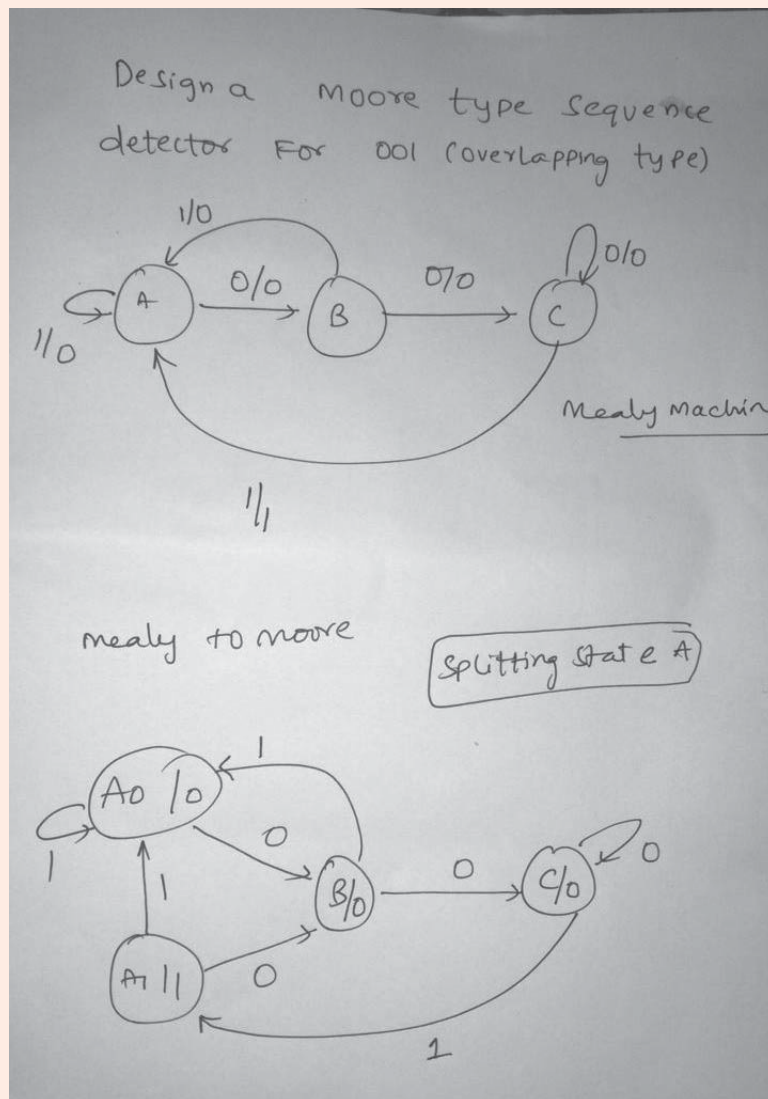 Design a Moore type Sequence
detector For 001 (overlapping type)
1/0
A
0/0
B
0/0
C
0/0
1/0
1/1
Mealy Machin
mealy to moore
Splitting State A
A0 /0
1
1
0
B/0
0
C/0
0
1
A1 /1
0
1